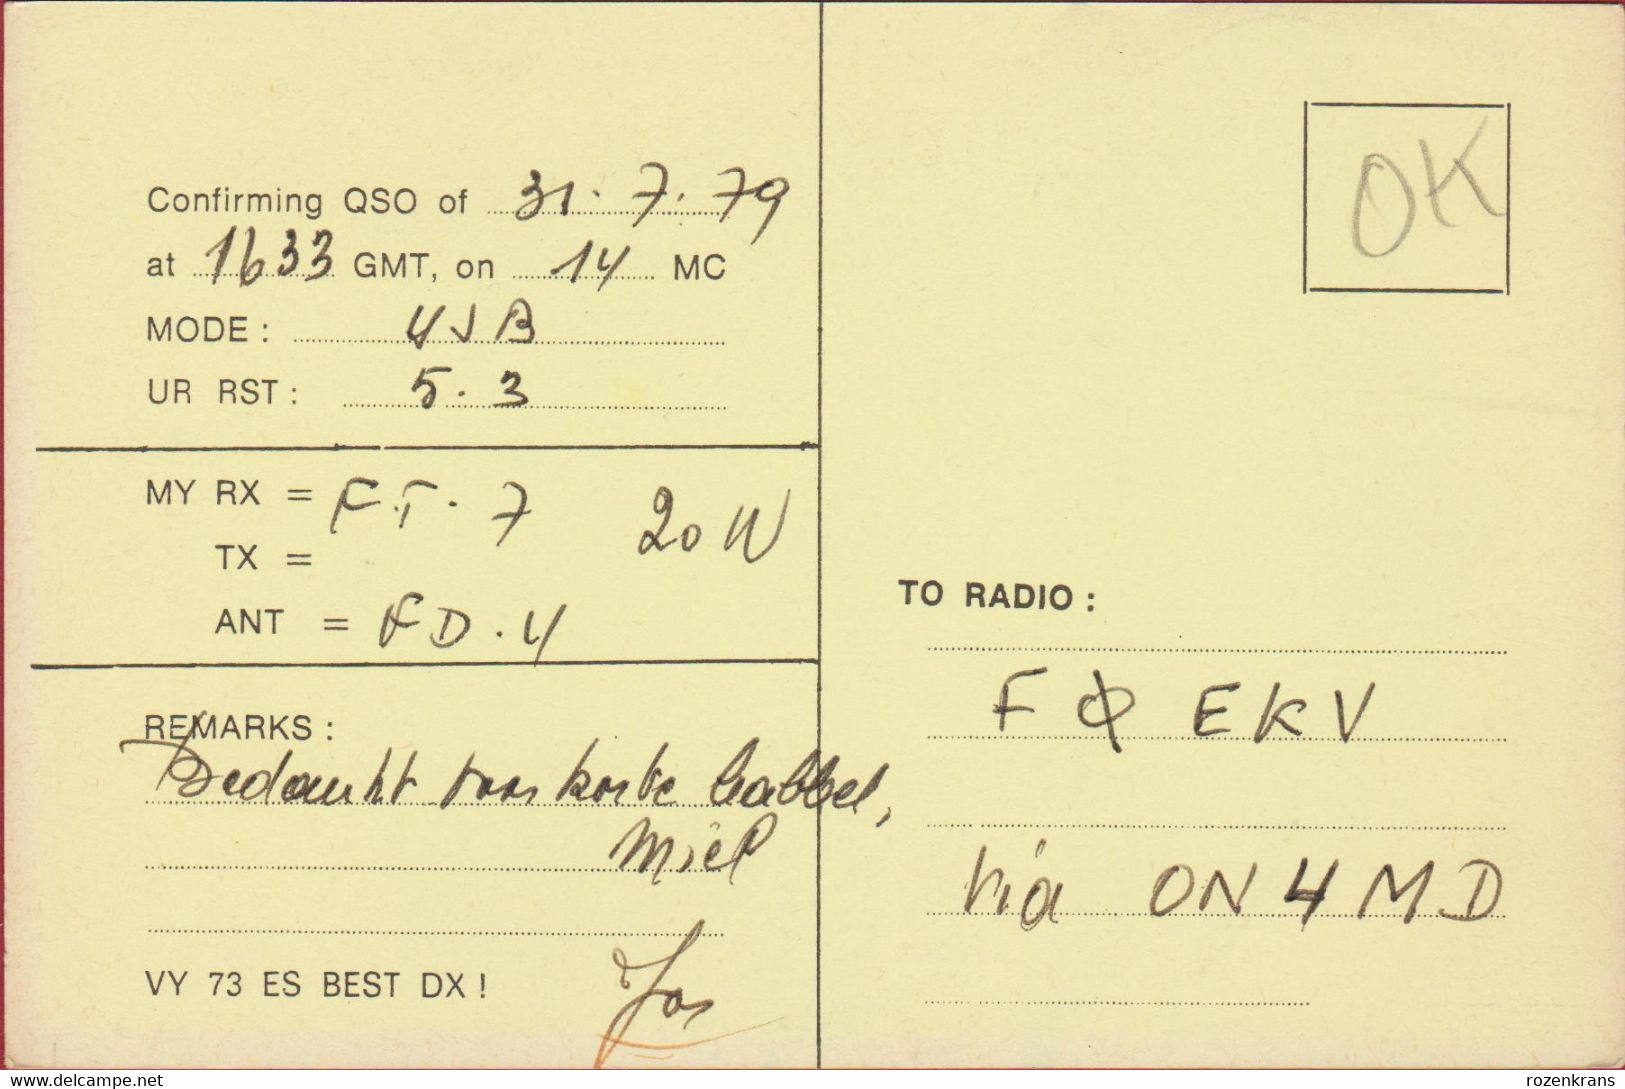 Confirming QSO of 31.7.79
at 1633 GMT, on 14 MC
MODE: USB
UR RST: 5.3
MY RX = F.T. 7
20 W
TX =
ANT = FD.4
REMARKS:
Bedankt voor korte babbel,
Miel
VY 73 ES BEST DX!
Jos
OK
TO RADIO:
FØEKV
via ON4MD
www.delcampe.net
rozenkrans